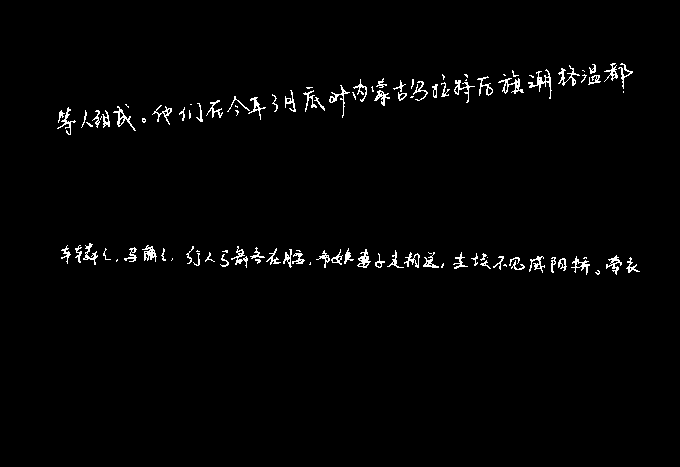 等人组成。他们在今年3月底对内蒙古乌拉特后旗潮格温都
车辚辚,马萧萧,行人弓箭各在腰,爷娘妻子走相送,尘埃不见咸阳桥。牵衣